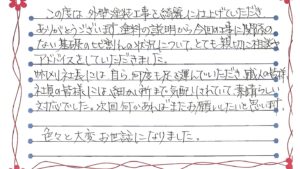 この度は外壁塗装工事を綺麗に仕上げていただき
ありがとうございます。塗料の説明から今回工事に関係の
ない基礎のヒビ割れの状況について、とても親切に相談や
アドバイスをしていただきました。
社長には自ら何度も足を運んでいただき、職人の皆様
社員の皆様には細かい所まで気配りされていて素晴らしい
対応でした。次回何かあればまたお願いしたいと思います。
色々と大変お世話になりました。